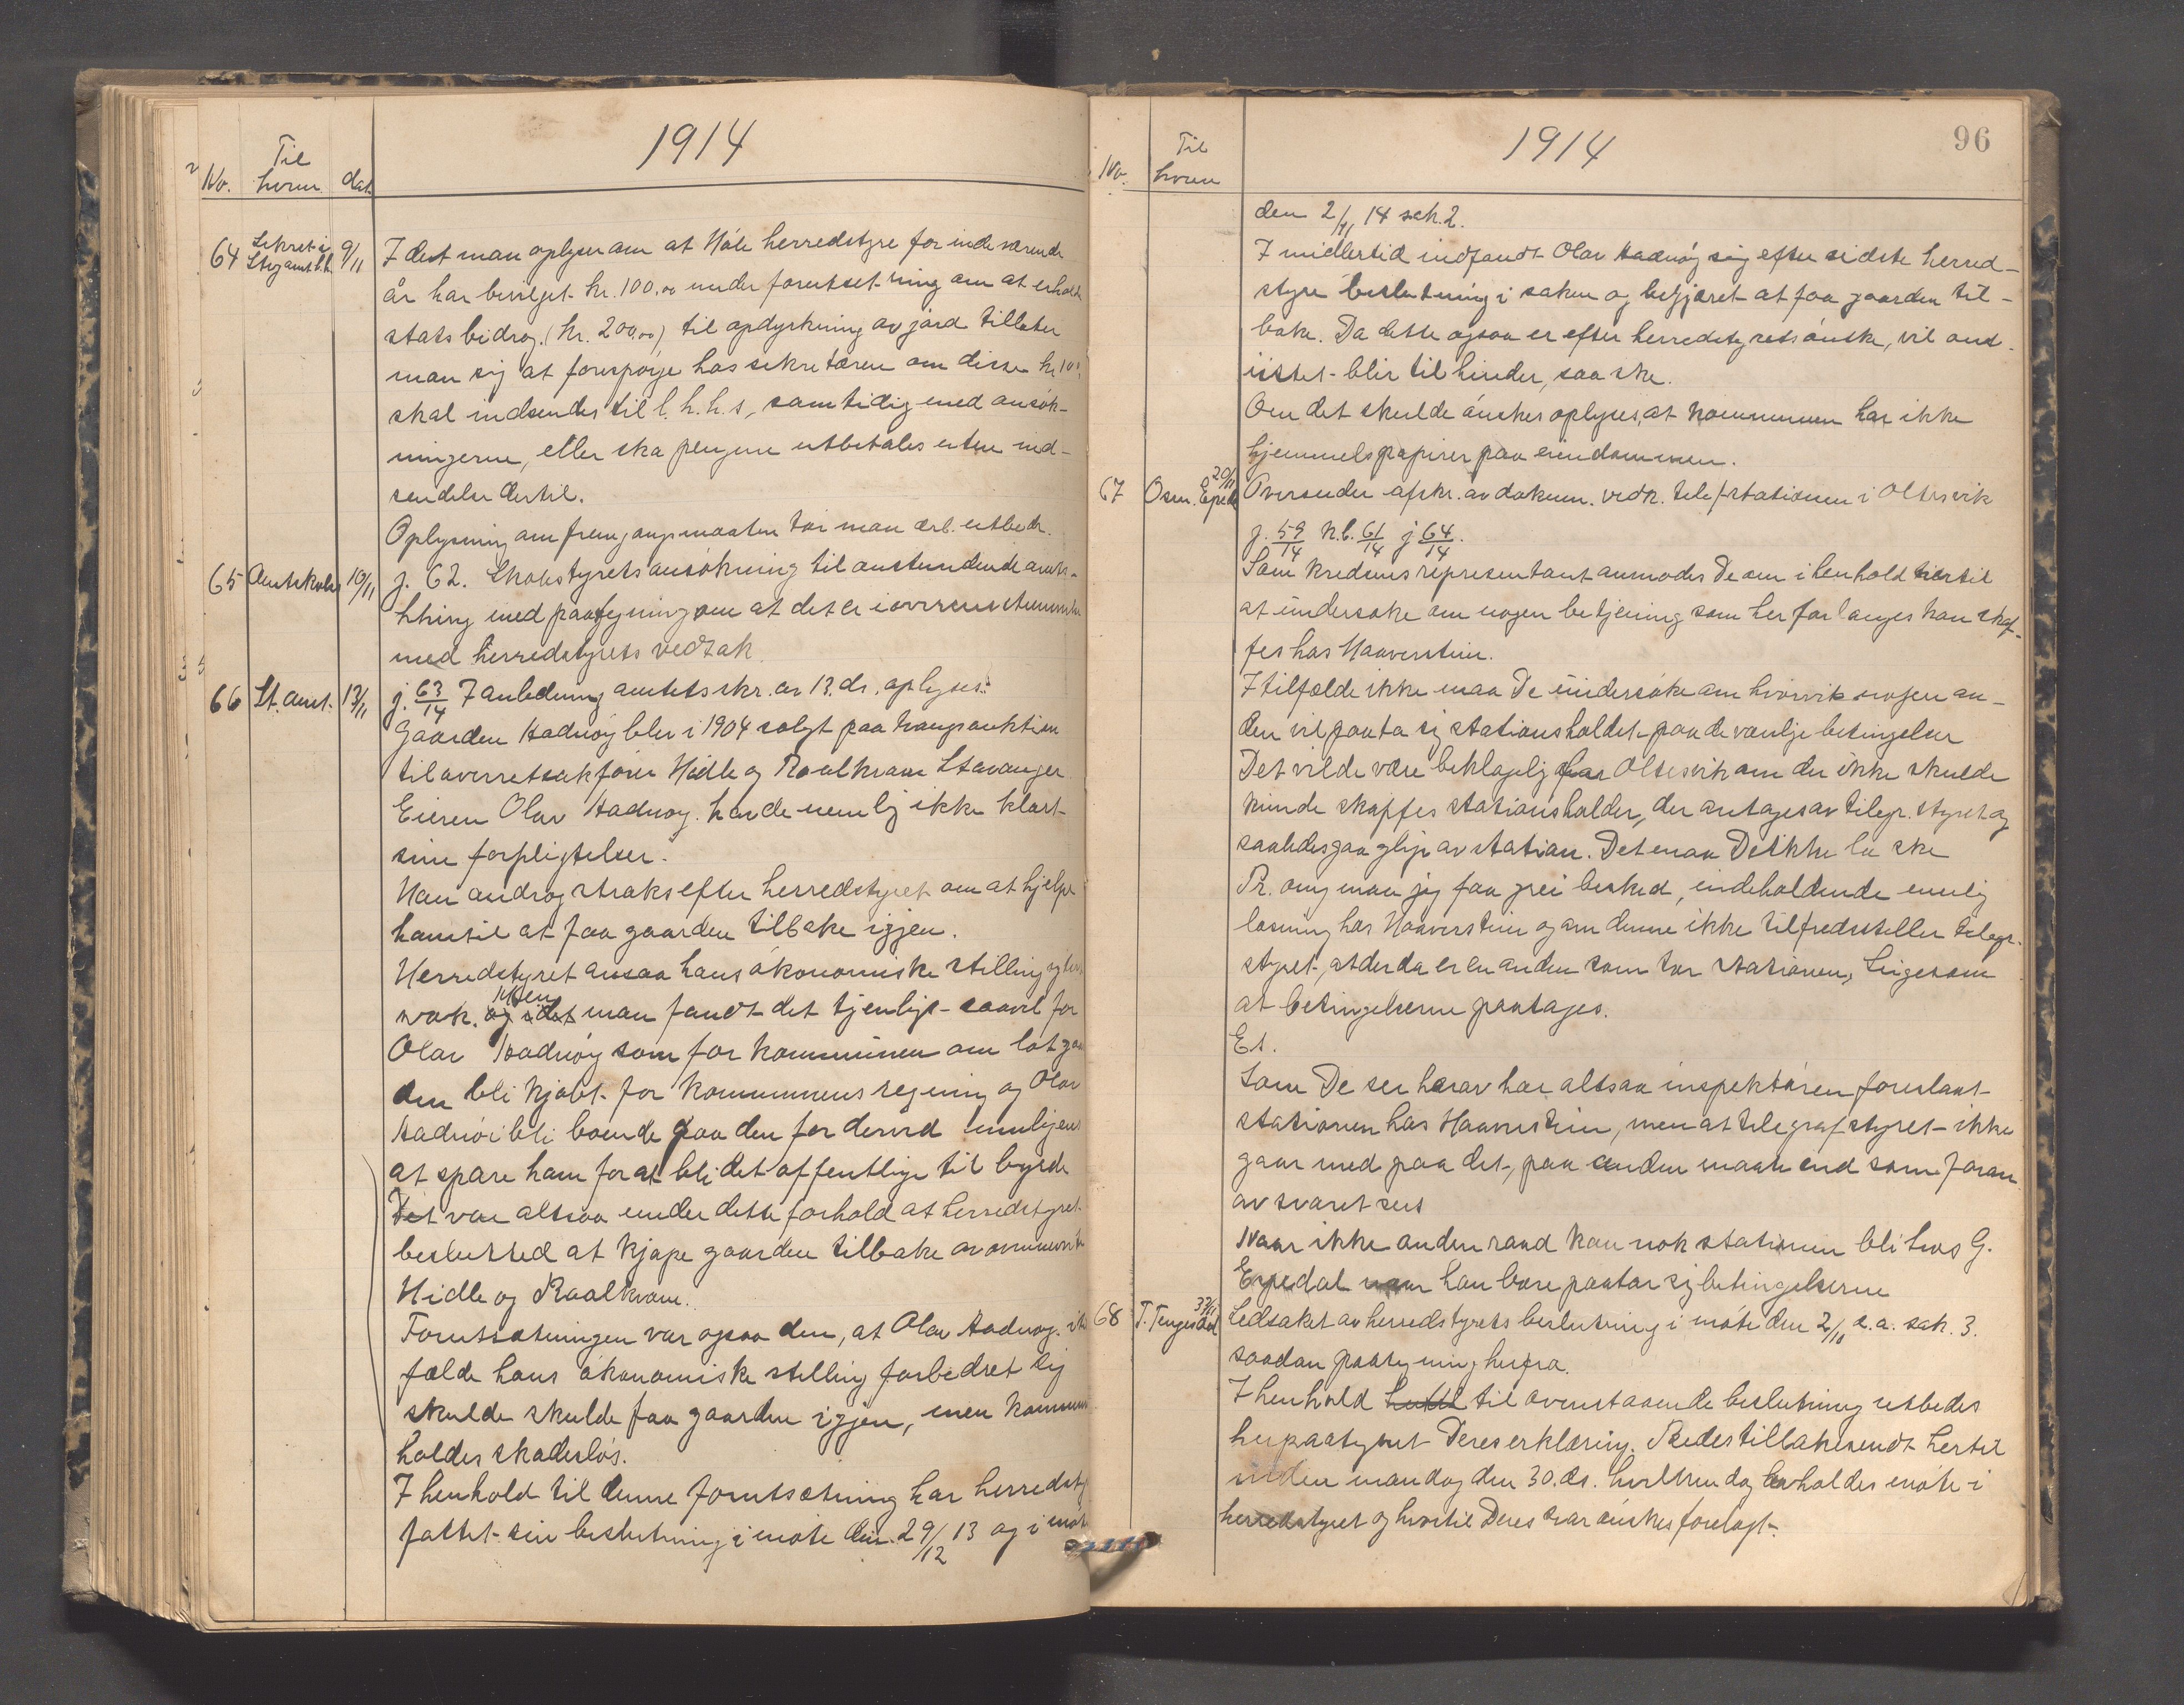 1914
No. Til hvem dat.
64 Sekret. i Stvg amt l.h. 9/11 I det man oplyser om at Höle herredstyre for indeværende
år har bevilget kr. 100,00 under forutsetning om at erholde
statsbidrag (kr. 200,00) til opdyrkning av jord tillater
man sig at forespörge hos sekretæren om disse kr 100,
skal indsendes til l.h.h.s, samtidig med ansök-
ningerne, eller ska pengene utbetales uten ind-
sendelse dertil.
Oplysning om fremgangsmaaten tör man ærb. utbede.
65 Amtskole 10/11 j. 62. Skolestyrets ansökning til anstundende amts-
med paategning om at det er i overensstemmelse
med herredstyrets vedtak.
66 St. amt. 13/11 j. 63/14 I anledning amtets skr. av 13. ds. oplyses:
Gaarden Aadnöy blev i 1904 solgt paa tvangsauktion
til overretsakförer Hidle og Roalkvam Stavanger
Eieren Olav Aadnöy havde nemlig ikke klart
sine forpligtelser.
Han androg straks efter herredstyret om at hjelpe
ham til at faa gaarden tilbake igjen.
Herredstyret ansaa hans ökonomiske stilling
svak. Men man fandt det tjenligt saavel for
Olav Aadnöy som for kommunen om lot gaar
den bli kjöbt for kommunens regning og Olav
Aadnöi bli boende paa den for derved muligens
at spare ham for at bli det offentlige til byrde
Det var altsaa under dette forhold at herredstyret
beslutted at kjöpe gaarden tilbake av ovennevnte
Hidle og Roalkvam.
Forutsætningen var ogsaa den, at Olav Aadnöy. i
fælde hans ökonomiske stilling forbedret sig
skulde skulde faa gaarden igjen, men kommunen
holdes skadeslös.
I henhold til denne forutsætning har herredsty
fattet sin beslutning i möte den 29/12 13 og i möte
1914
96
No. Til hvem
den 2/11 14 sak. 2.
Imidlertid indfandt Olav Aadnöy sig efter sidste herred-
styre beslutning i saken og begjæret at faa gaarden til-
bake. Da dette ogsaa er efter herredstyrets önske, vil om
intet blir til hinder, saa ske.
Om det skulde önskes oplyses, at kommunen har ikke
hjemmelspapirer paa eiendommen.
67 Osm. Espedal 20/11 Oversender afskr. av dokum. vedr. telefstationen i Oltesvik
j. 59/14 k.b. 61/14 j 64/14.
Som kredsens representant anmodes De om i henhold hertil
at undersöke om nogen betjening som her forlanges kan skaf-
fes hos Haaverstein.
I tilfælde ikke maa De undersöke om hvorvidt nogen an-
den vil paata sig stationsholdet paa de vanlige betingelser
Det vilde være beklagelig for Oltesvik om der ikke skulde
kunde skaffes stationsholder, der antages av telegr. styret og
saaledes gaa glip av station. Det maa De ikke la ske
Pr. omg maa jeg faa grei besked, indeholdende mulig
lösning hos Haaverstein og om denne ikke tilfredsstiller telegr.
styret, at der da er en anden som tar stationen, ligesom
at betingelserne paatages.
Es.
Som De ser herav har altsaa inspektören foreslaat
stationen hos Haaverstein, men at telegrafstyret ikke
gaar med paa det, paa anden maate end som foran
av svaret sees
Naar ikke anden raad kan nok stationen bli hos G.
Espedal naar han bare paatar sig betingelserne
68 T. Tengesdal Ledsaket av herredstyrets beslutning i möte den 2/11 s.a. sak. 3.
saadan paategning herfra.
I henhold til ovenstaaende beslutning utbedes
herpaategnet Deres erklæring. Bedes tilbakesendt hertil
inden mandag den 30. ds. hvilken dag avholdes möte i
herredstyret og hvortil Deres svar önskes forelagt.